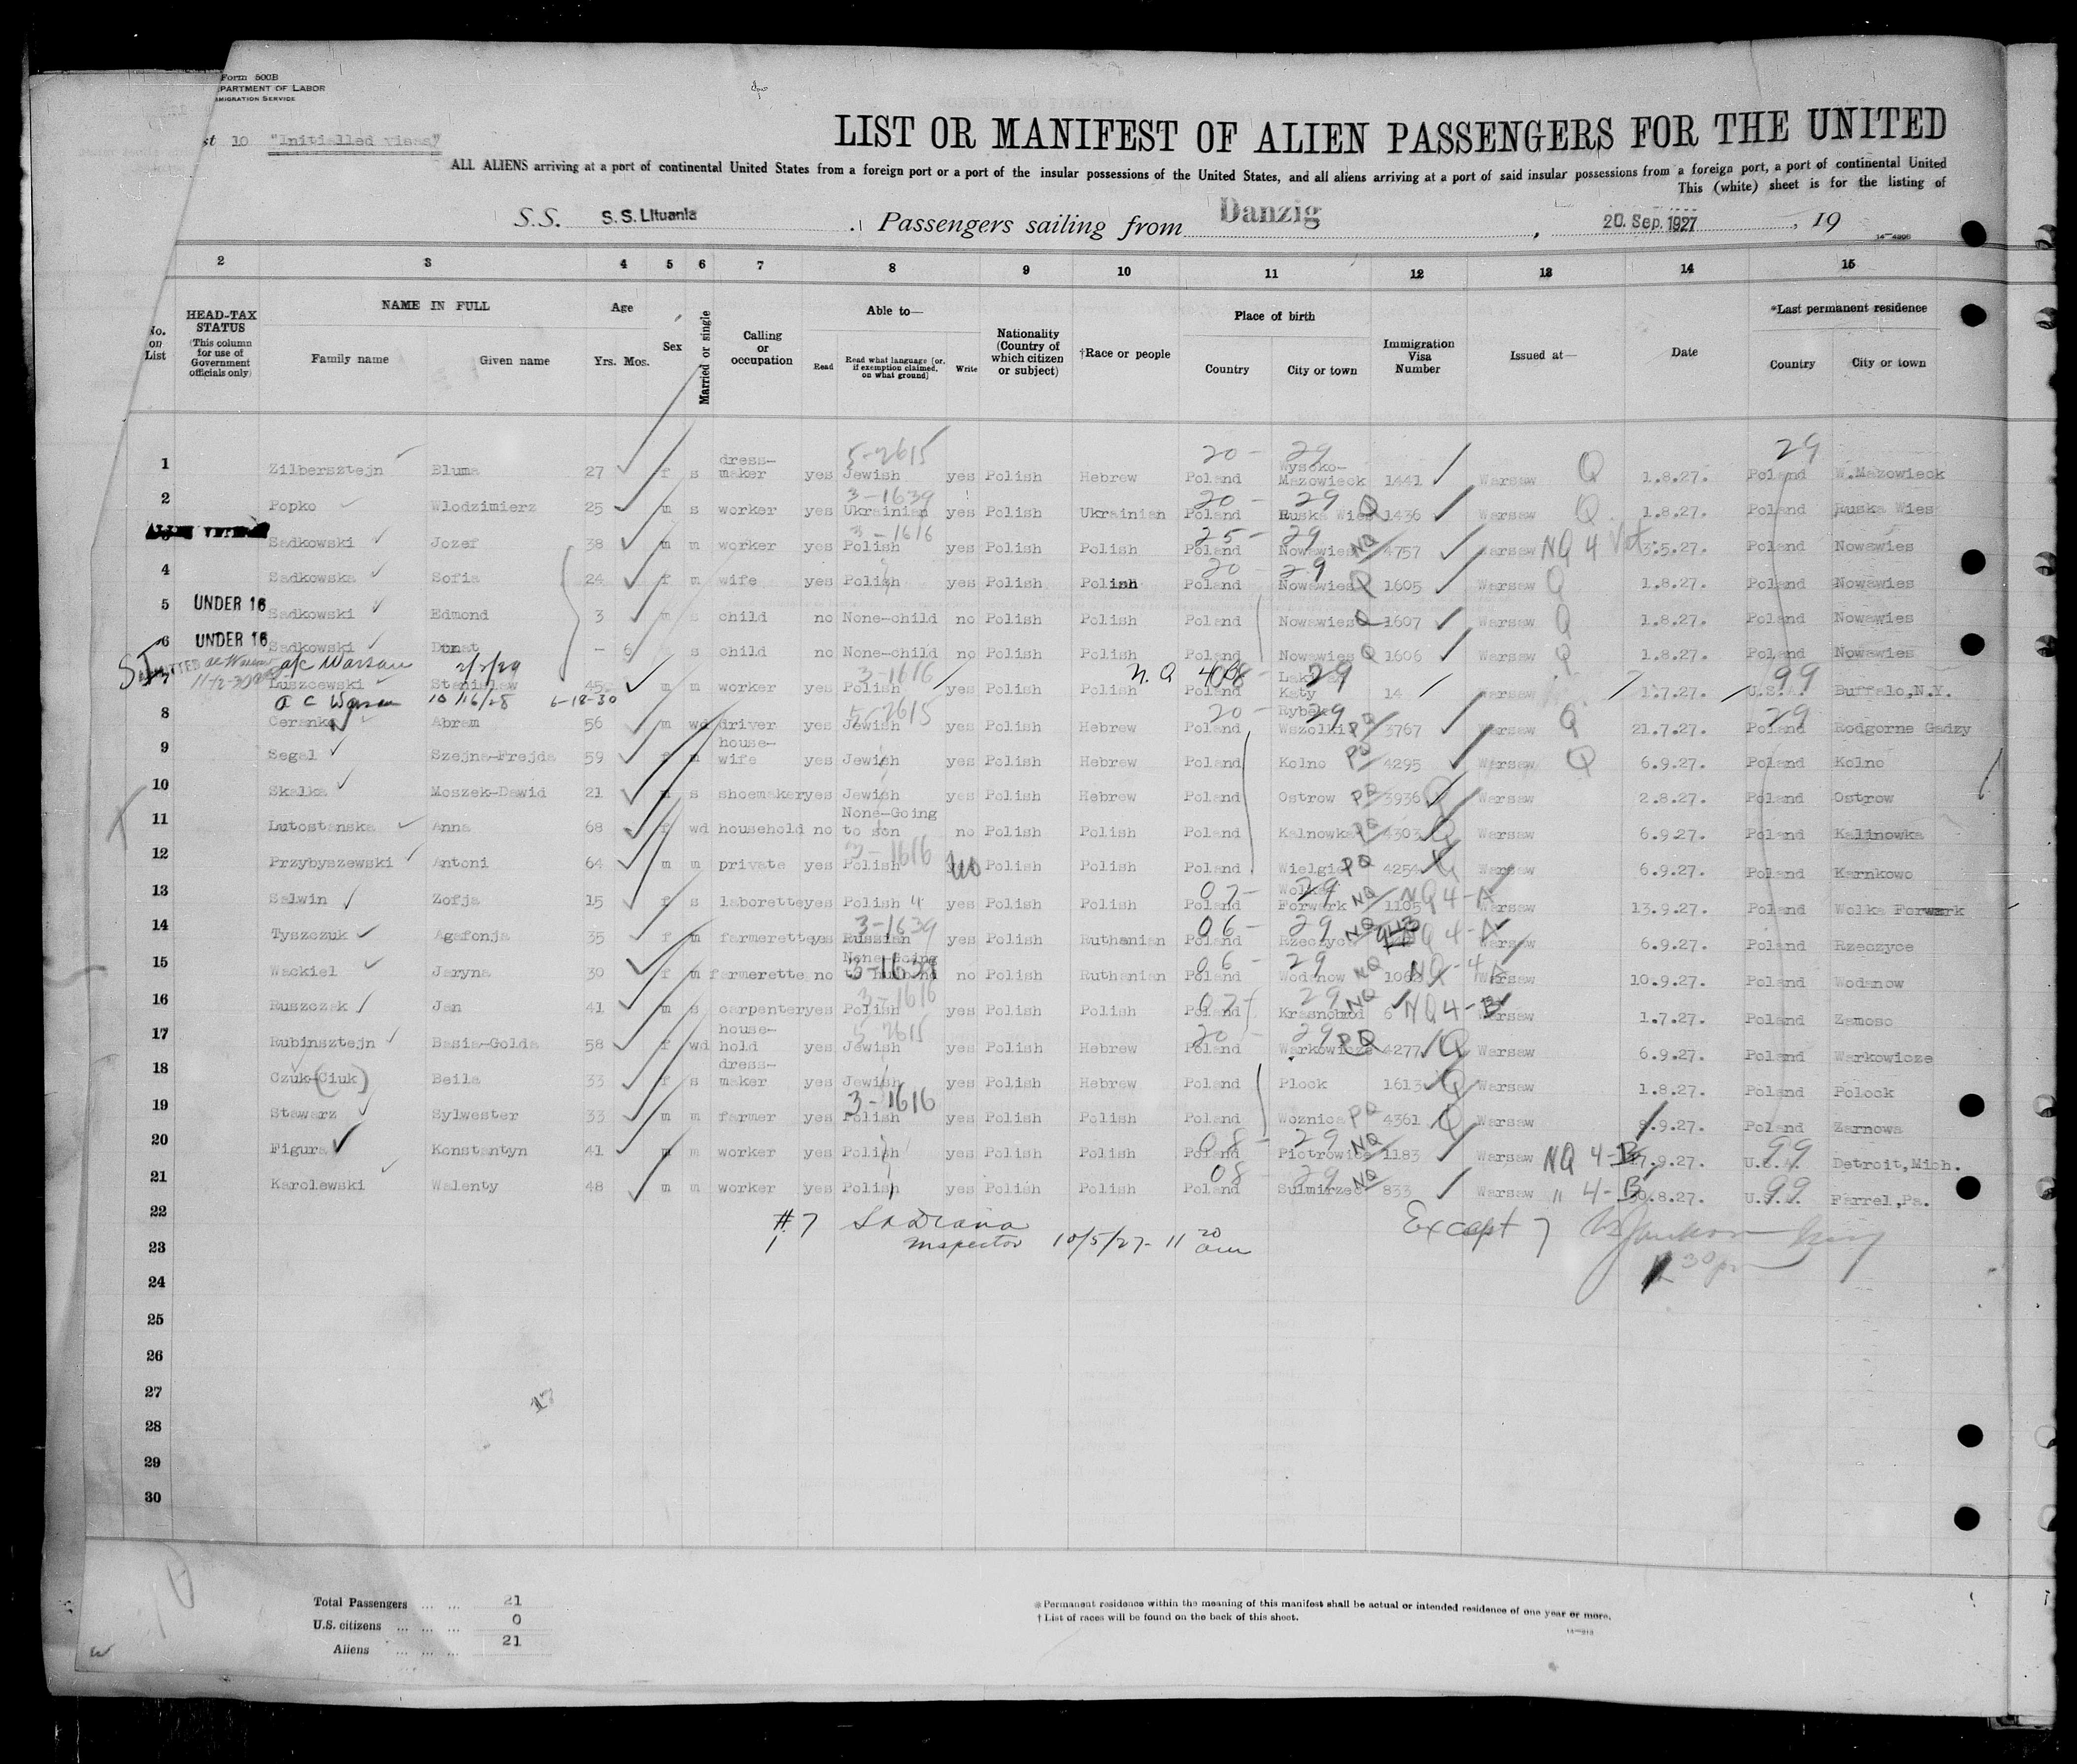 Form 500B
PARTMENT OF LABOR
MIGRATION SERVICE
st 10 "Initialled visas"
LIST OR MANIFEST OF ALIEN PASSENGERS FOR THE UNITED
ALL ALIENS arriving at a port of continental United States from a foreign port or a port of the insular possessions of the United States, and all aliens arriving at a port of said insular possessions from a foreign port, a port of continental United
This (white) sheet is for the listing of
S.S. S.S. Lituania Passengers sailing from Danzig, 20. Sep. 1927, 19
2 3 4 5 6 7 8 9 10 11 12 13 14 15
No. on List
HEAD-TAX STATUS (This column for use of Government officials only)
NAME IN FULL Family name Given name
Age Yrs. Mos.
Sex
Married or single
Calling or occupation
Able to— Read Read what language (or, if exemption claimed, on what ground) Write
Nationality (Country of which citizen or subject)
†Race or people
Place of birth Country City or town
Immigration Visa Number
Issued at—
Date
*Last permanent residence Country City or town
5-2615 20- 29 29
1 Zilbersztejn Bluma 27 f s dress-maker yes Jewish yes Polish Hebrew Poland Wysoko-Mazowieck 1441 Warsaw Q 1.8.27. Poland W.Mazowieck
3-1639 20- 29 Q
2 Popko Wlodzimierz 25 m s worker yes Ukrainian yes Polish Ukrainian Poland Ruska Wies 1436 Warsaw Q 1.8.27. Poland Ruska Wies
3-1616 25- 29 NQ
Sadkowski Jozef 38 m m worker yes Polish yes Polish Polish Poland Nowawies 4757 Warsaw NQ 4 Vet 3.5.27. Poland Nowawies
20- 29
4 Sadkowska Sofia 24 f m wife yes Polish yes Polish Polish Poland Nowawies Q 1605 Warsaw Q 1.8.27. Poland Nowawies
5 UNDER 16 Sadkowski Edmond 3 m s child no None-child no Polish Polish Poland Nowawies Q 1607 Warsaw Q 1.8.27. Poland Nowawies
6 UNDER 16 Sadkowski Donat - 6 s child no None-child no Polish Polish Poland Nowawies Q 1606 Warsaw Q 1.8.27. Poland Nowawies
SI a/c Warsaw 2/2/29 3-1616 N.Q 29 99
7 Luszcewski Stanislaw 45 m m worker yes Polish yes Polish Polish Poland Katy 14 Warsaw 1.7.27. U.S.A. Buffalo,N.Y.
a c Warsaw 10/16/28 6-18-30 5-2615 20- 29 29
8 Ceranka Abram 56 m wd driver yes Jewish yes Polish Hebrew Poland Wszolki PQ 3767 Warsaw Q 21.7.27. Poland Rodgorne Gadzy
9 Segal Szejna-Frejda 59 f m house-wife yes Jewish yes Polish Hebrew Poland Kolno PQ 4295 Warsaw Q 6.9.27. Poland Kolno
10 Skalka Moszek-Dawid 21 m s shoemaker yes Jewish yes Polish Hebrew Poland Ostrow PQ 3936 Q Warsaw 2.8.27. Poland Ostrow
11 Lutostanska Anna 68 f wd household no None-Going to son no Polish Polish Poland Kalnowka PQ 4303 Q Warsaw 6.9.27. Poland Kalinowka
3-1616
12 Przybyszewski Antoni 64 m m private yes Polish no Polish Polish Poland Wielgie PQ 4254 Q Warsaw 6.9.27. Poland Karnkowo
07- 29 NQ NQ 4-A
13 Salwin Zofja 15 f s laborette yes Polish yes Polish Polish Poland Wolka Forwark 1105 Warsaw 13.9.27. Poland Wolka Forwark
3-1639 06- 29 NQ NQ 4-A
14 Tyszczuk Agafonja 35 f m farmerette yes Russian yes Polish Ruthenian Poland Rzeczyce 943 Warsaw 6.9.27. Poland Rzeczyce
3-1639 06- 29 NQ NQ-4A
15 Wackiel Jaryna 30 f m farmerette no None-Going to husband no Polish Ruthanian Poland Wodanow Warsaw 10.9.27. Poland Wodanow
3-1616 07- 29 NQ NQ 4-B
16 Ruszczak Jan 41 m s carpenter yes Polish yes Polish Polish Poland Krasnobrod 6 Warsaw 1.7.27. Poland Zamosc
5-2615 20- 29 PQ
17 Rubinsztejn Basia-Golda 58 f wd house-hold yes Jewish yes Polish Hebrew Poland Warkowicze 4277 Q Warsaw 6.9.27. Poland Warkowicze
18 Czuk-(Ciuk) Beila 33 f s dress-maker yes Jewish yes Polish Hebrew Poland Plock 1613 Q Warsaw 1.8.27. Poland Polock
3-1616
19 Stawarz Sylwester 33 m m farmer yes Polish yes Polish Polish Poland Woznica PQ 4361 Q Warsaw 8.9.27. Poland Zarnowa
08- 29 NQ 99
20 Figura Konstantyn 41 m m worker yes Polish yes Polish Polish Poland Piotrowice 1183 Warsaw NQ 4-B 17.9.27. U.S.A. Detroit,Mich.
08- 29 NQ 99
21 Karolewski Walenty 48 m m worker yes Polish yes Polish Polish Poland Sulmirzec 833 Warsaw " 4-B 30.8.27. U.S.A. Farrel,Pa.
22 #7 Except 7
23 Inspector 10/5/27- 11 20 am
24 30 pm
25
26
27
28
29
30
Total Passengers 21
U.S. citizens 0
Aliens 21
*Permanent residence within the meaning of this manifest shall be actual or intended residence of one year or more.
†List of races will be found on the back of this sheet.